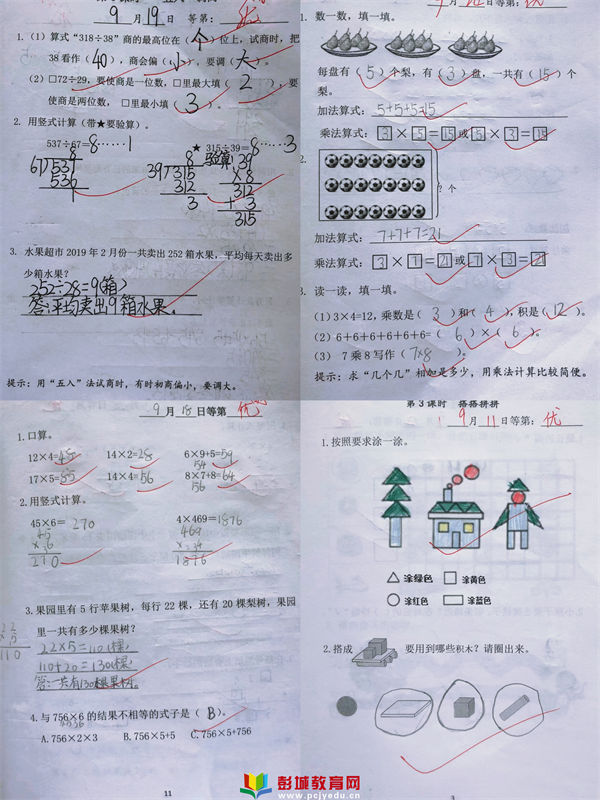 9月19日 等第：优
1.（1）算式“318÷38”商的最高位在（个）位上，试商时，把
38看作（40），商会偏（小），要调（大）。
（2）□72÷29，要使商是一位数，□里最大填（2），要
使商是两位数，□里最小填（3）。
2. 用竖式计算（带★要验算）。
537÷67=8……1 ★ 315÷39=8……3
8 8 验算：39
67 537 39 315 ×8
536 312 312
1 3 + 3
315
3. 水果超市2019年2月份一共卖出252箱水果，平均每天卖出多
少箱水果？
252÷28=9（箱）
答：平均卖出9箱水果。
提示：用“五入”法试商时，有时初商偏小，要调大。
等第：优
1. 数一数，填一填。
每盘有（5）个梨，有（3）盘，一共有（15）个
梨。
加法算式：5+5+5=15
乘法算式：3×5=15或5×3=15
2.
? 个
加法算式：7+7+7=21
乘法算式：3×7=21或7×3=21
3. 读一读，填一填。
（1）3×4=12，乘数是（3）和（4），积是（12）。
（2）6+6+6+6+6+6=（6）×（6）。
（3） 7乘8写作（7×8）。
提示：求“几个几”相加是多少，用乘法计算比较简便。
9月18日等第 优
1.口算。
12×4=48 14×2=28 6×9+5=59
54
17×5=85 14×4=56 8×7+8=64
56
2.用竖式计算。
45×6= 270 4×469=1876
45 469
× 6 ×
270 1876
3.果园里有5行苹果树，每行22棵，还有20棵梨树，果园
里一共有多少棵果树？
22
× 5
110
22×5=110（棵）
110+20=130（棵）
答：一共有130棵果树。
4.与756×6的结果不相等的式子是（B）。
A.756×2×3 B.756×5+5 C.756×5+756
11
第3课时 搭搭拼拼
9月11日等第：优
1.按照要求涂一涂。
△ 涂绿色 □ 涂黄色
○ 涂红色 ▭ 涂蓝色
2.搭成 要用到哪些积木？请圈出来。
3
彭城教育网
www.pcjyedu.cn